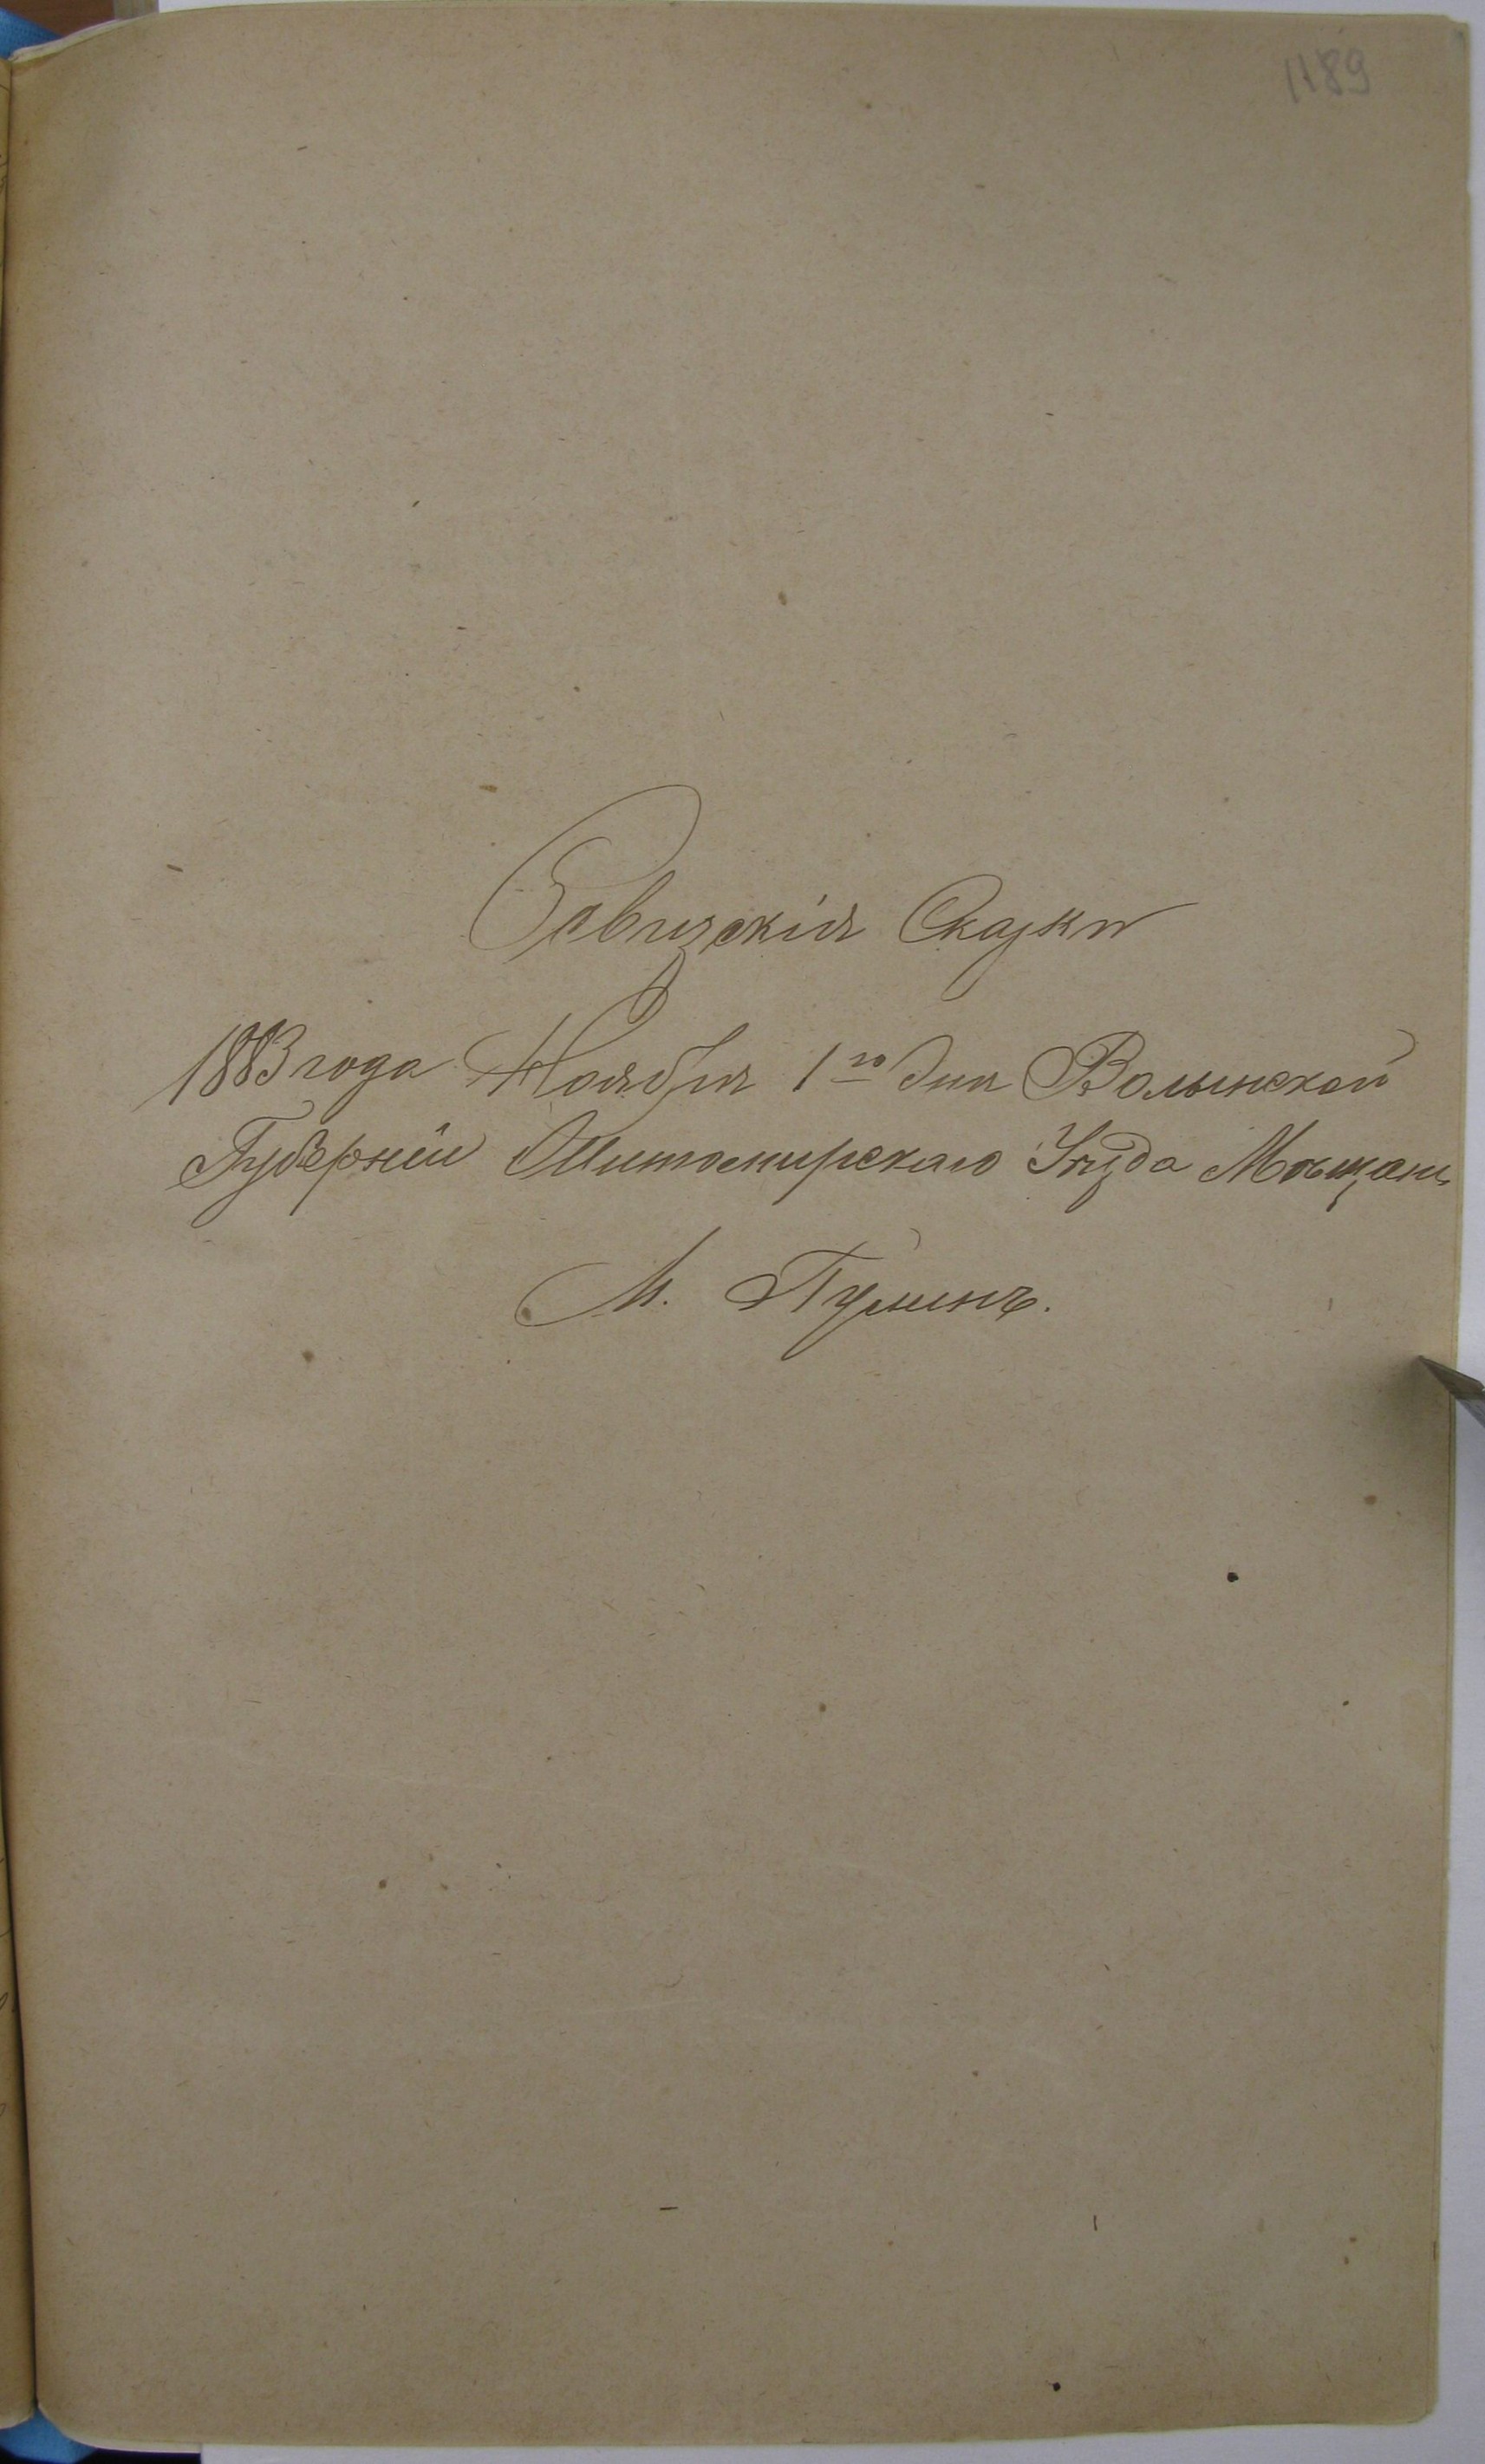 1189
Ревизскія Сказки
1883 года Ноября 1го дня Волынской
Губерніи Житомирскаго Уѣзда Мѣщанъ
М. Пулинъ.